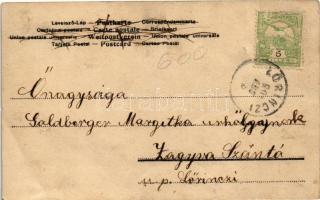 Levelező-Lap Postkarte Correspondenzkarte
Carte postale
Union postale universelle Weltpostverein Union postale universelle
Tarjeta Postal Postcard Cartao Postal
600
5
LŐRINCZI
Őnagysága
Goldberger Margitka urhölgynek
Zagyva Szántó
u.p. Lőrinczi